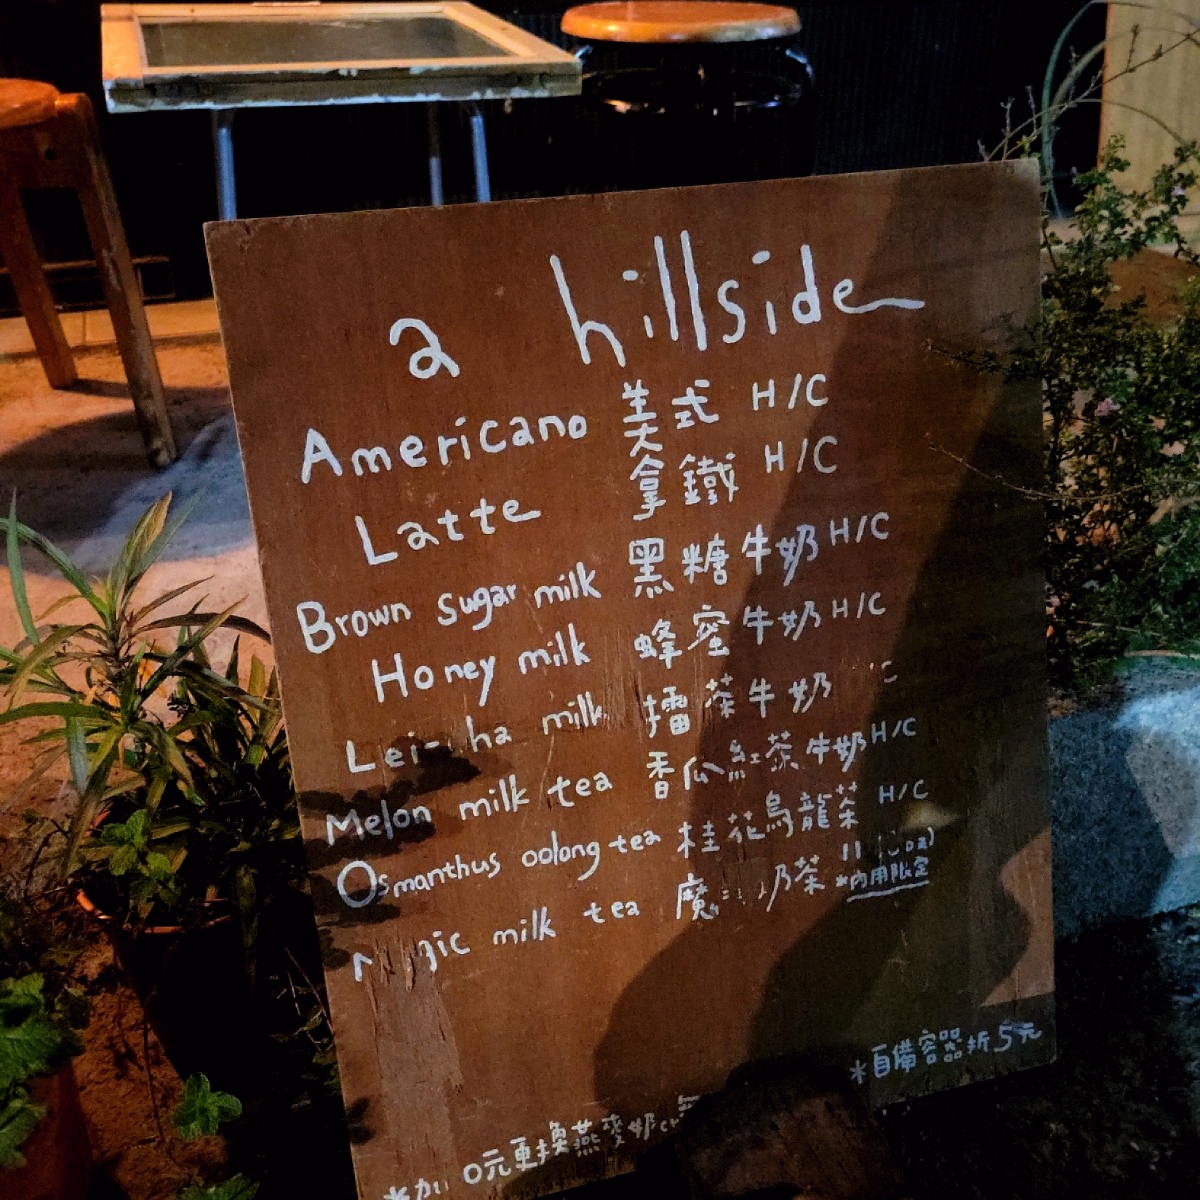 a hillside
Americano 美式 H/C
Latte 拿鐵 H/C
Brown sugar milk 黑糖牛奶 H/C
Honey milk 蜂蜜牛奶 H/C
milk 擂茶牛奶
Melon milk tea 香瓜紅茶牛奶 H/C
Osmanthus oolong tea 桂花烏龍茶 H/C
milk tea 奶茶
*內用限定
*自備容器折5元
元更換燕麥奶